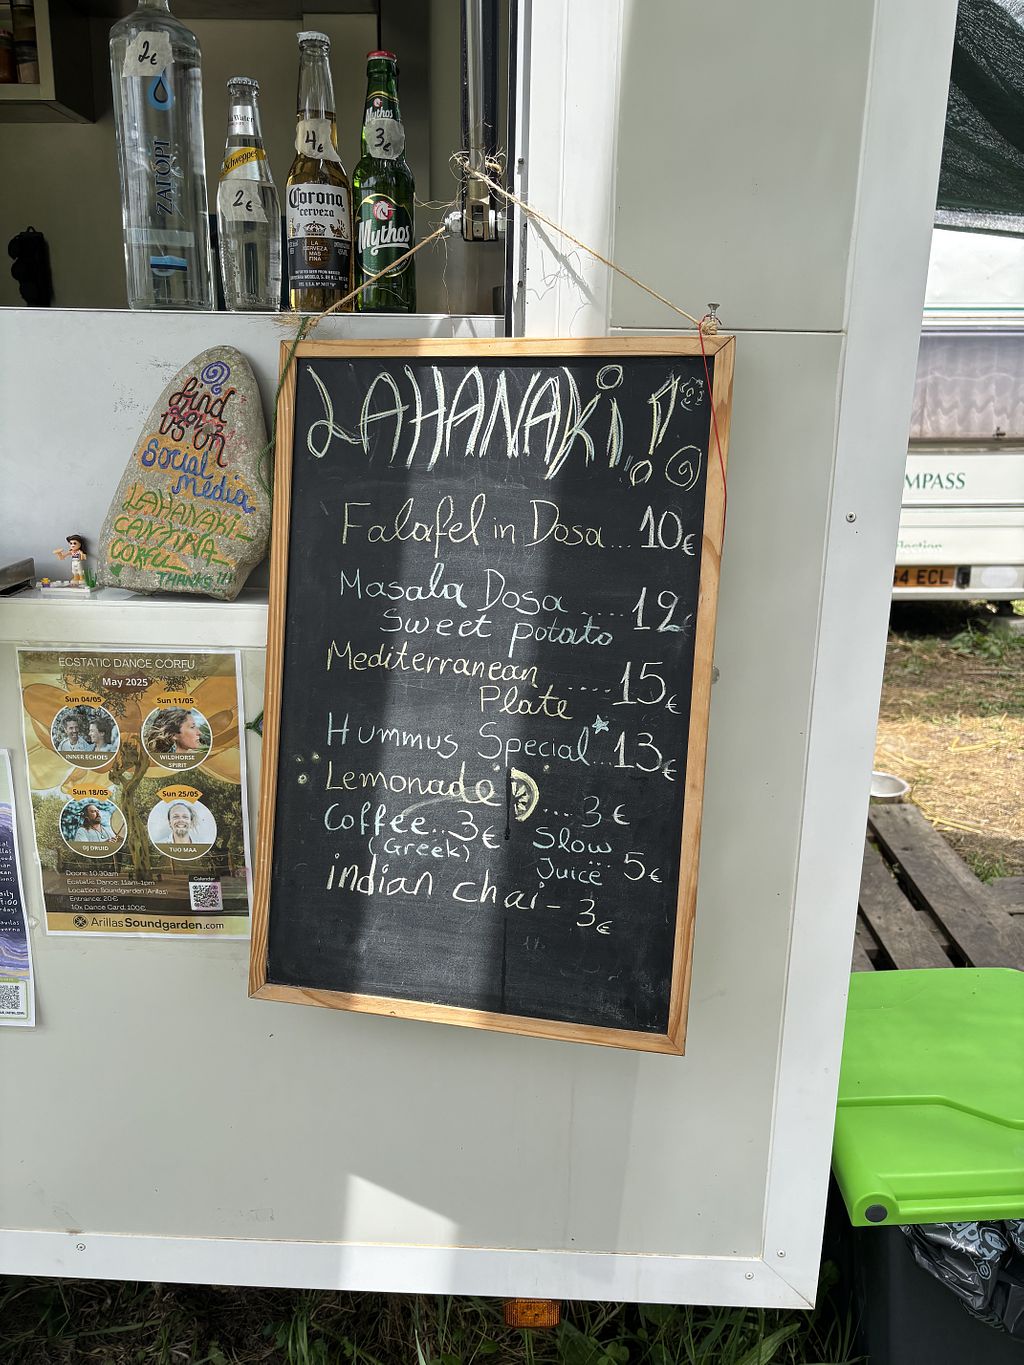 2€
ZAГOPI
Schweppes
2€
4€
Corona
cerveza
LA
CERVEZA
MAS
FINA
Mythos
3€
Mythos
find
us on
Social
media
LAHANAKI
CANTINA
CORFU
THANKS!!!
LAHANAKi!
Falafel in Dosa...10€
Masala Dosa ....12€
Sweet potato
Mediterranean
Plate ....15€
Hummus Special*..13€
Lemonade ... 3€
Coffee..3€
(Greek)
Slow
Juice ... 5€
indian chai - 3€
ECSTATIC DANCE CORFU
May 2025
Sun 04/05
Sun 11/05
INNER ECHOES
WILDHORSE
SPIRIT
Sun 18/05
Sun 25/05
DJ DRUID
TUO MAA
Doors: 10.30am
Ecstatic Dance: 11am-1pm
Location: Soundgarden (Arillas)
Entrance: 20€
10x Dance Card: 100€
Calendar
ArillasSoundgarden.com
MPASS
54 ECL